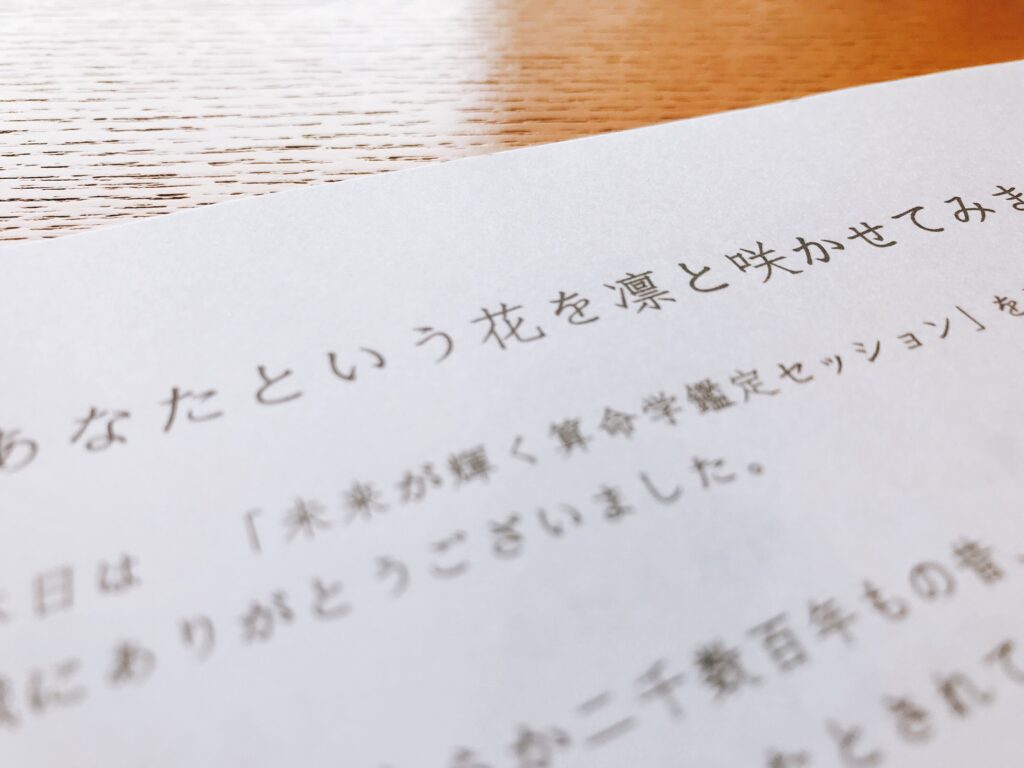 あなたという花を凛と咲かせてみま
本日は 「未来が輝く算命学鑑定セッション」を
にありがとうございました。
二千数百年もの昔、
とされて